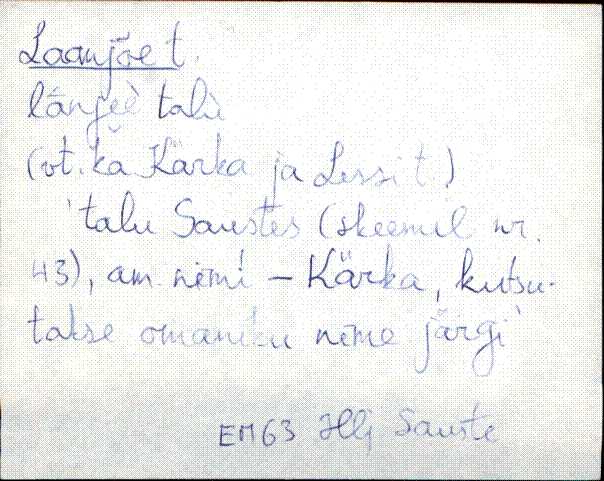 Laanjõe t.
lānjeè talù
(vt. ka Kärka ja Lessi t.)
'talu Saustes (skeemil nr.
43), am. nimi – Kärka, kutsu-
takse omaniku nime järgi'
EM63 Hlj Sauste